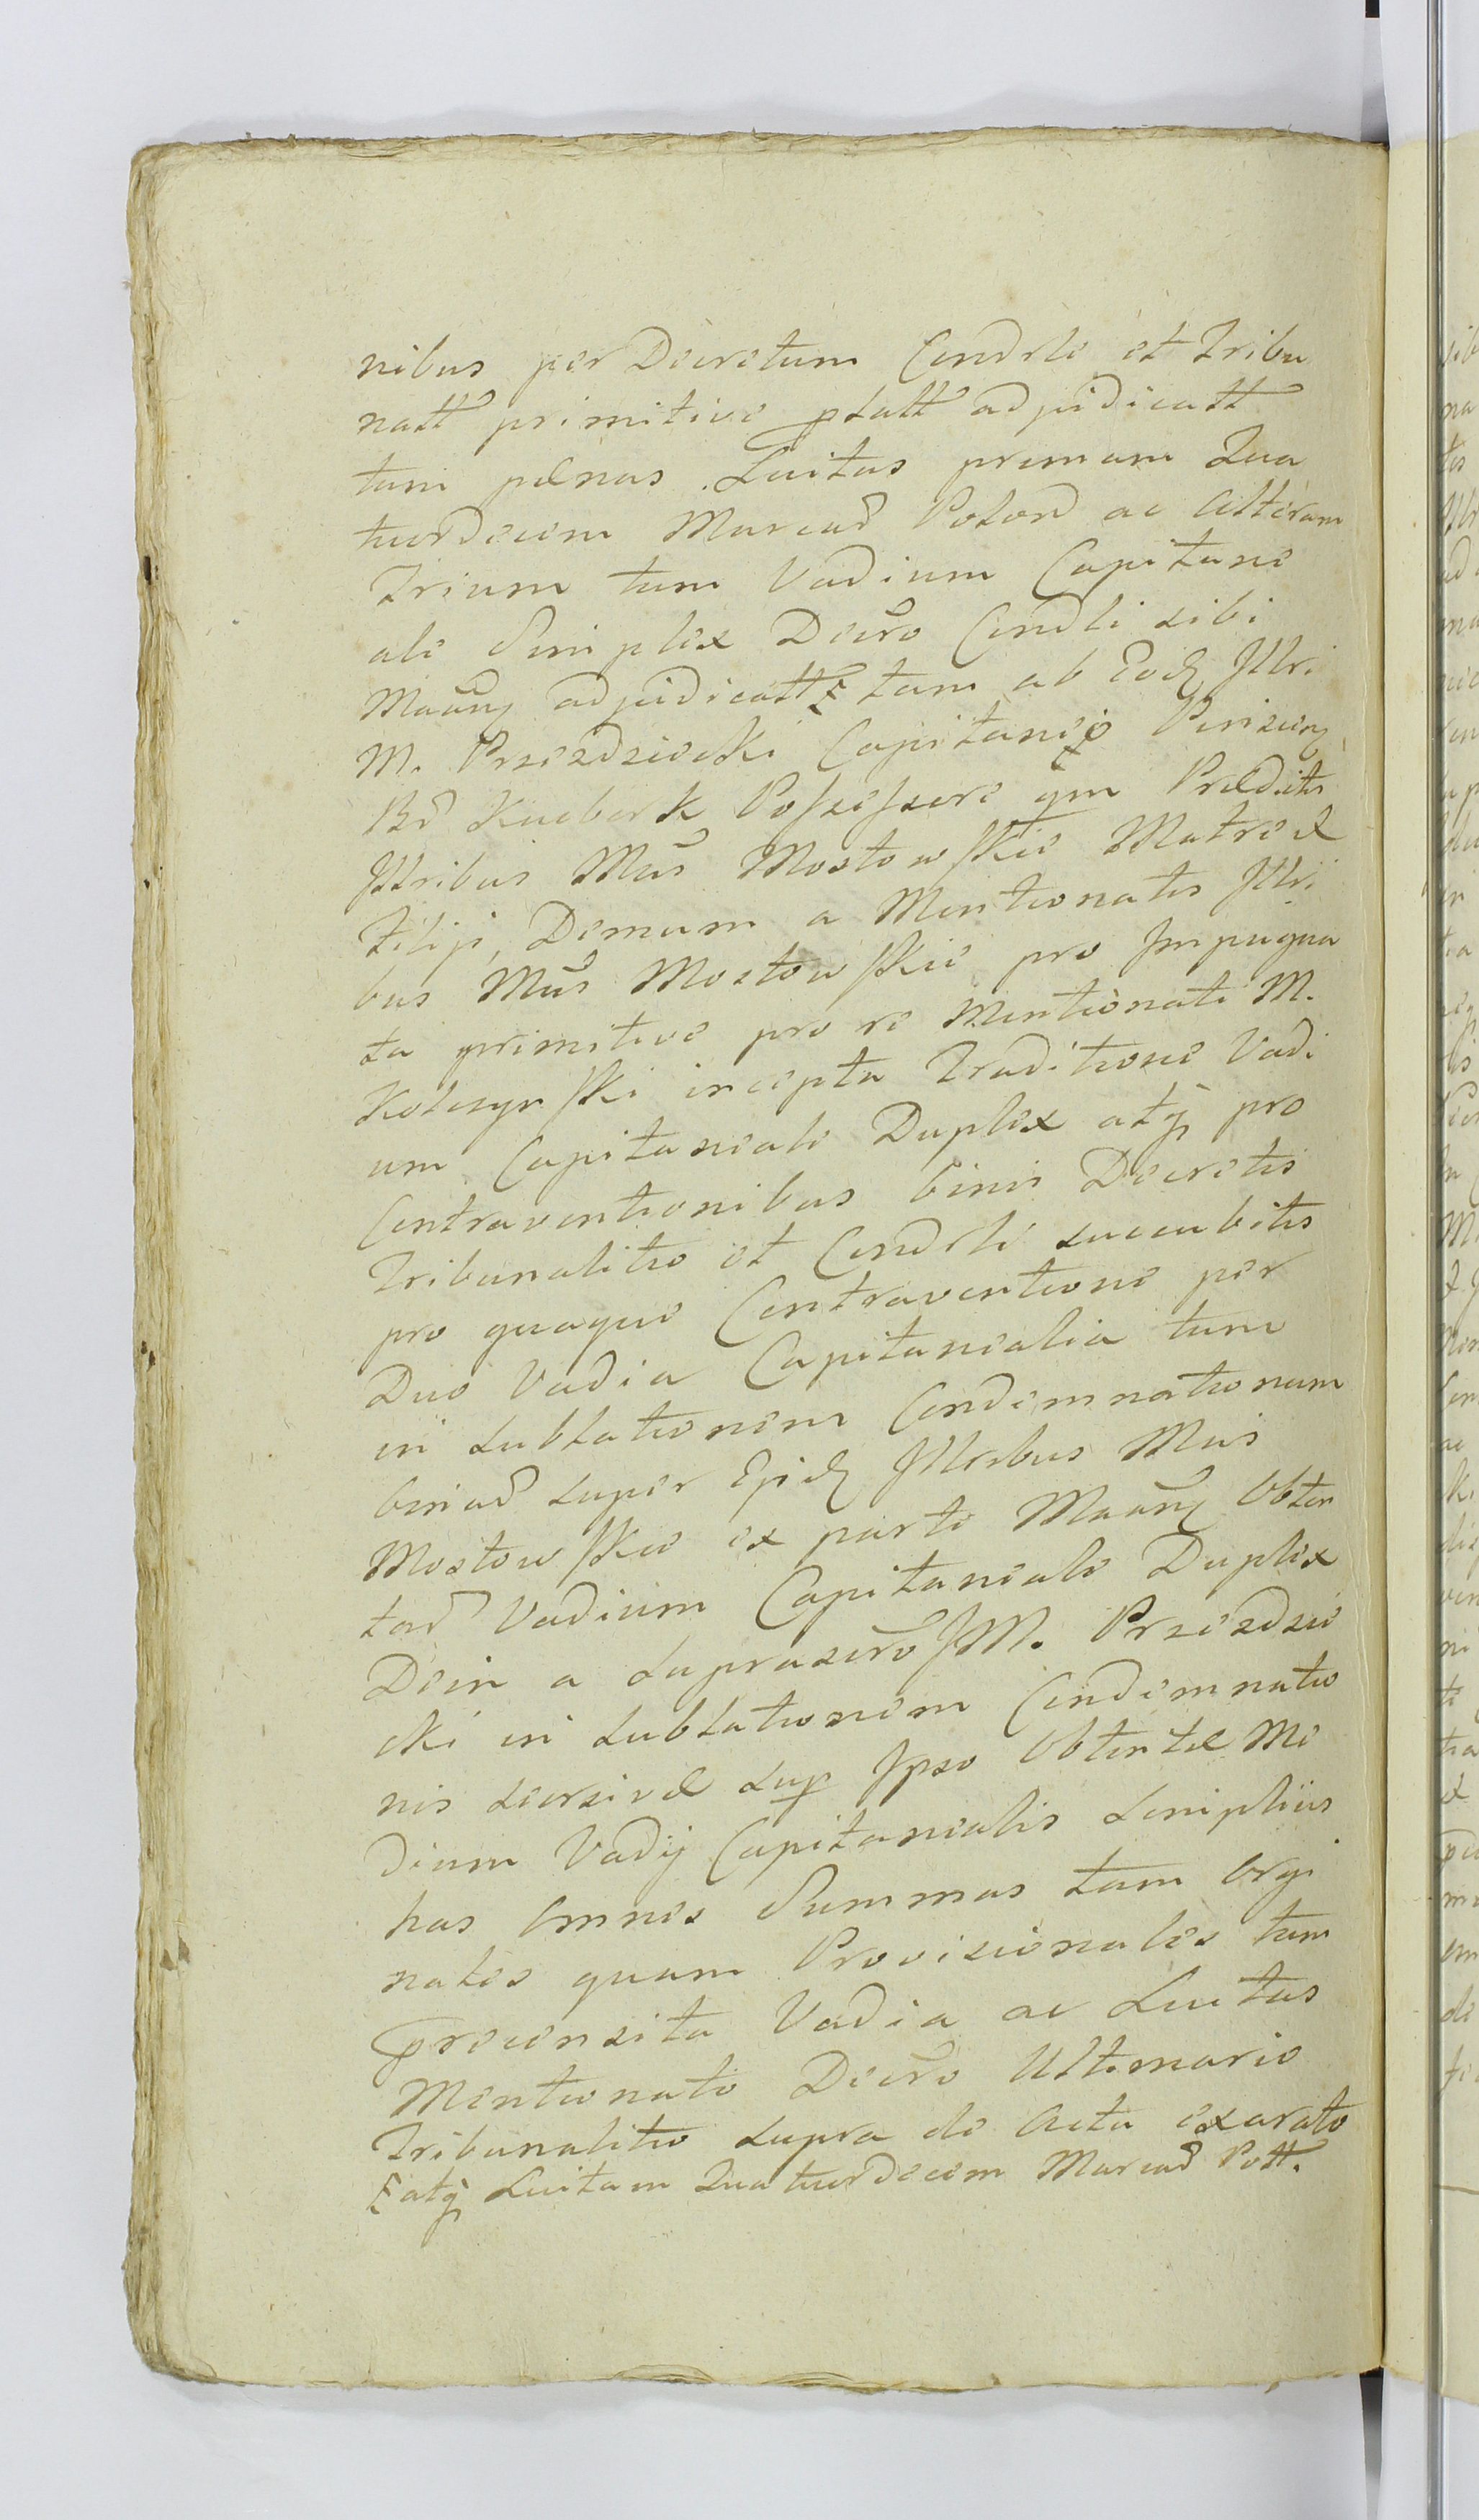 nibus per Decretum Condrle et Tribu
natt primitive platt adjudicatt
tum pænas. Luitas primam Qua
tuordecem Marcar̃ Polonr̃ ac Alteram
Trium tum Vadium Capitane
ale Simplex Decr̃o Condli sibi
Maãnj adjudicatt tam ab Eodz Illri
M. Przezdziecki Capitaneo Pinscen
Br̃ Kuebork Possessore qm Prædictis
Illribus Mũs Mostowskie Matre &
Filiji, Demum a Mentionatis Illri
bus Mũs Mostowskie pro Impugna
ta primitive pro re Mentionati M.
Kolczynski incepta Traditione Vadi
um Capitaneale Duplex atq pro
Contraventionibus binis Decretis
Tribunalitio et Condrli succubitis
pro quaque Contraventione per
Duo Vadia Capitanealia tum
in sublationem Condemnationum
binar̃ super Ejsdz Illribus Mũs
Mostowskie ex parte Maãnj Obten
tar̃ Vadium Capitaneale Duplex
Dein a suprascr̃o JM. Przezdzie
cki in sublationem Condemnatio
nis scursivæ sup Ipso Obtentæ Me
dium Vadij Capitanealis simplicis
has Omnes Summas tam Orgi
nales quam Provisionales tum
præcensita Vadia ac Luitas
Mentionato Decr̃o Ultimario
Tribunalitio supra de Actu exarato
atq Luitam Quatuordecem Marcar̃ Poll.